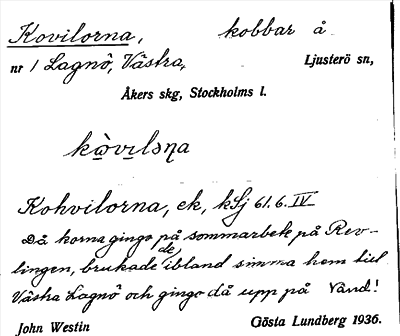 Kovilorna, kobbar å
nr 1 Lagnö, Västra, Ljusterö sn,
Åkers skg, Stockholms l.
Kohvilorna, ek, kSj 61.6.IV
Då korna gingo på sommarbete på Rev-
lingen, brukade de ibland simma hem till
Västra Lagnö och gingo då upp på
John Westin Gösta Lundberg 1936.